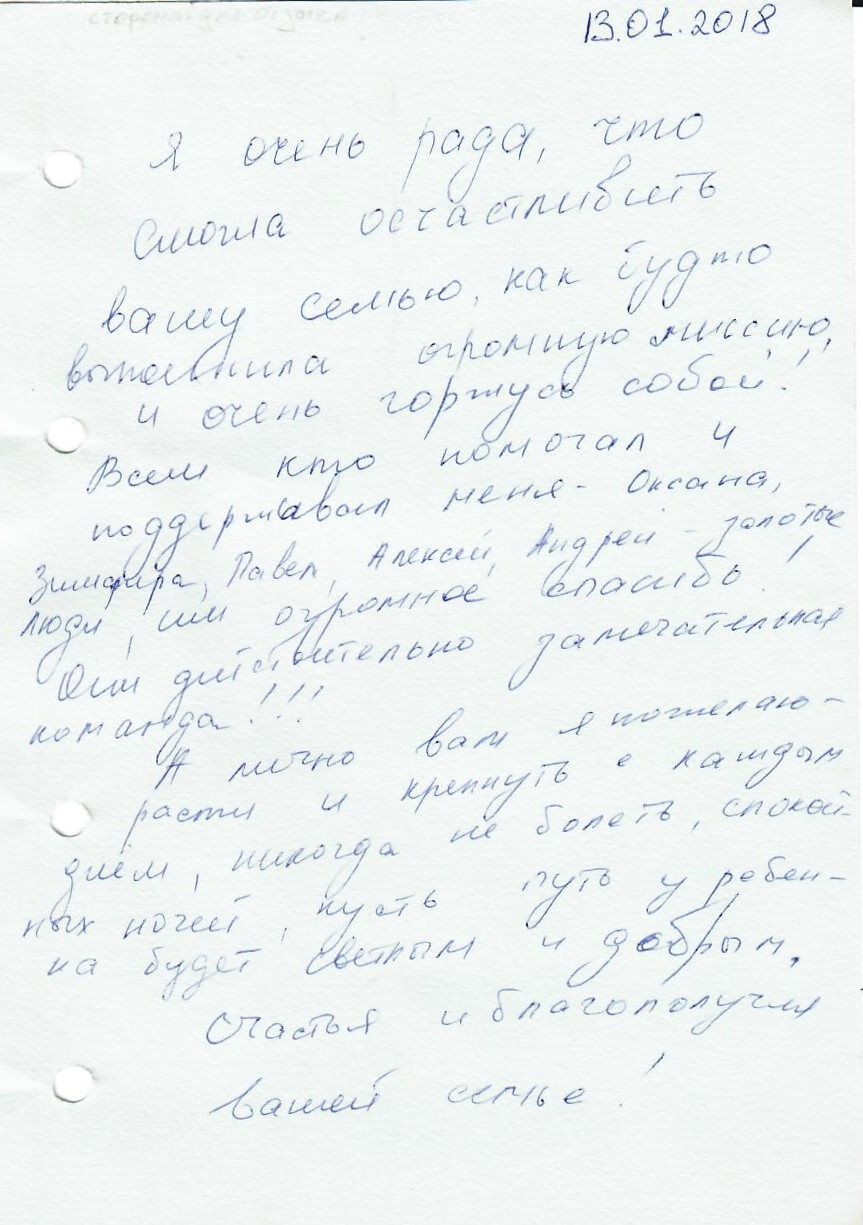 13.01.2018
Я очень рада, что
смогла осчастливить
вашу семью, как будто
выполнила огромную миссию,
и очень горжусь собой!
Всем кто помогал и
поддерживал меня - Оксана,
Зимфира, Павел, Алексей, Андрей - золотые
люди, им огромное спасибо!
Они действительно замечательная
команда!!!
А лично вам я пожелаю -
расти и крепнуть с каждым
днём, никогда не болеть, спокой-
ных ночей, пусть путь у ребен-
ка будет светлым и добрым.
Счастья и благополучия
вашей семье!